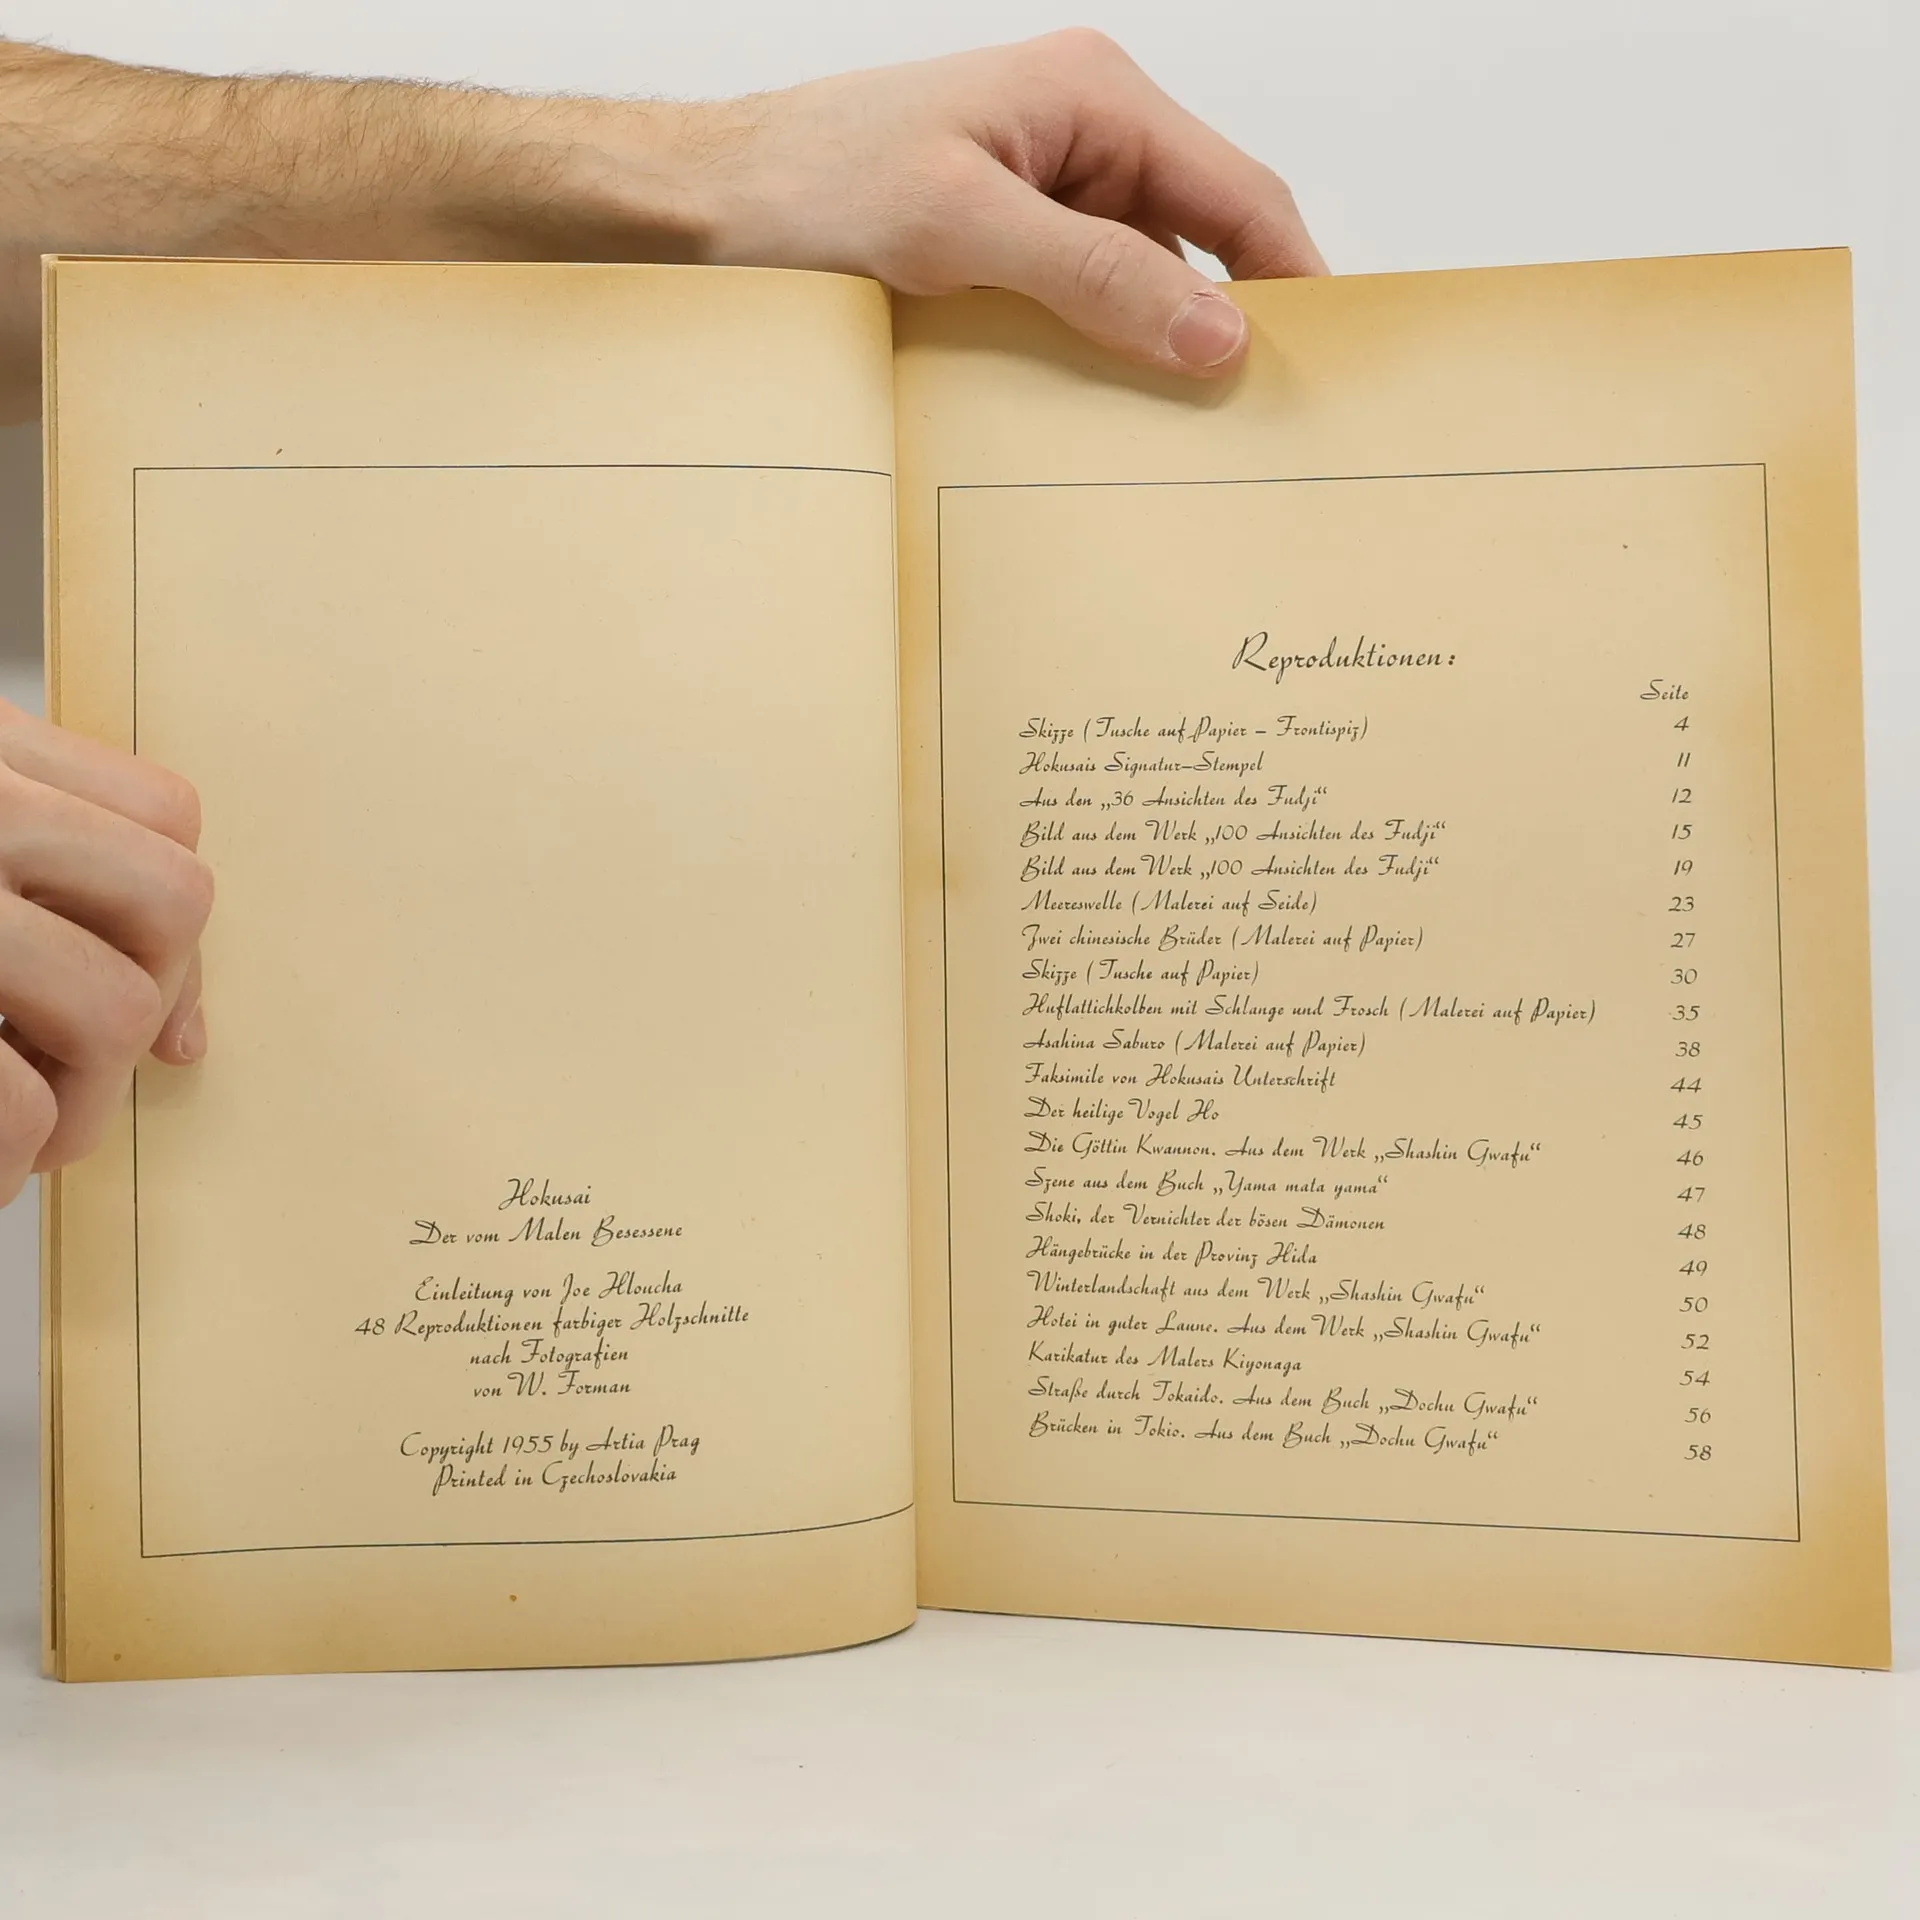 Hokusai
Der vom Malen Besessene
Einleitung von Joe Hloucha
48 Reproduktionen farbiger Holzschnitte
nach Fotografien
von W. Forman
Copyright 1955 by Artia Prag
Printed in Czechoslovakia
Reproduktionen:
Seite
Skizze (Tusche auf Papier – Frontispiz) 4
Hokusais Signatur–Stempel 11
Aus den „36 Ansichten des Fudji“ 12
Bild aus dem Werk „100 Ansichten des Fudji“ 15
Bild aus dem Werk „100 Ansichten des Fudji“ 19
Meereswelle (Malerei auf Seide) 23
Zwei chinesische Brüder (Malerei auf Papier) 27
Skizze (Tusche auf Papier) 30
Huflattichkolben mit Schlange und Frosch (Malerei auf Papier) 35
Asahina Saburo (Malerei auf Papier) 38
Faksimile von Hokusais Unterschrift 44
Der heilige Vogel Ho 45
Die Göttin Kwannon. Aus dem Werk „Shashin Gwafu“ 46
Szene aus dem Buch „Yama mata yama“ 47
Shoki, der Vernichter der bösen Dämonen 48
Hängebrücke in der Provinz Hida 49
Winterlandschaft aus dem Werk „Shashin Gwafu“ 50
Hotei in guter Laune. Aus dem Werk „Shashin Gwafu“ 52
Karikatur des Malers Kiyonaga 54
Straße durch Tokaido. Aus dem Buch „Dochu Gwafu“ 56
Brücken in Tokio. Aus dem Buch „Dochu Gwafu“ 58